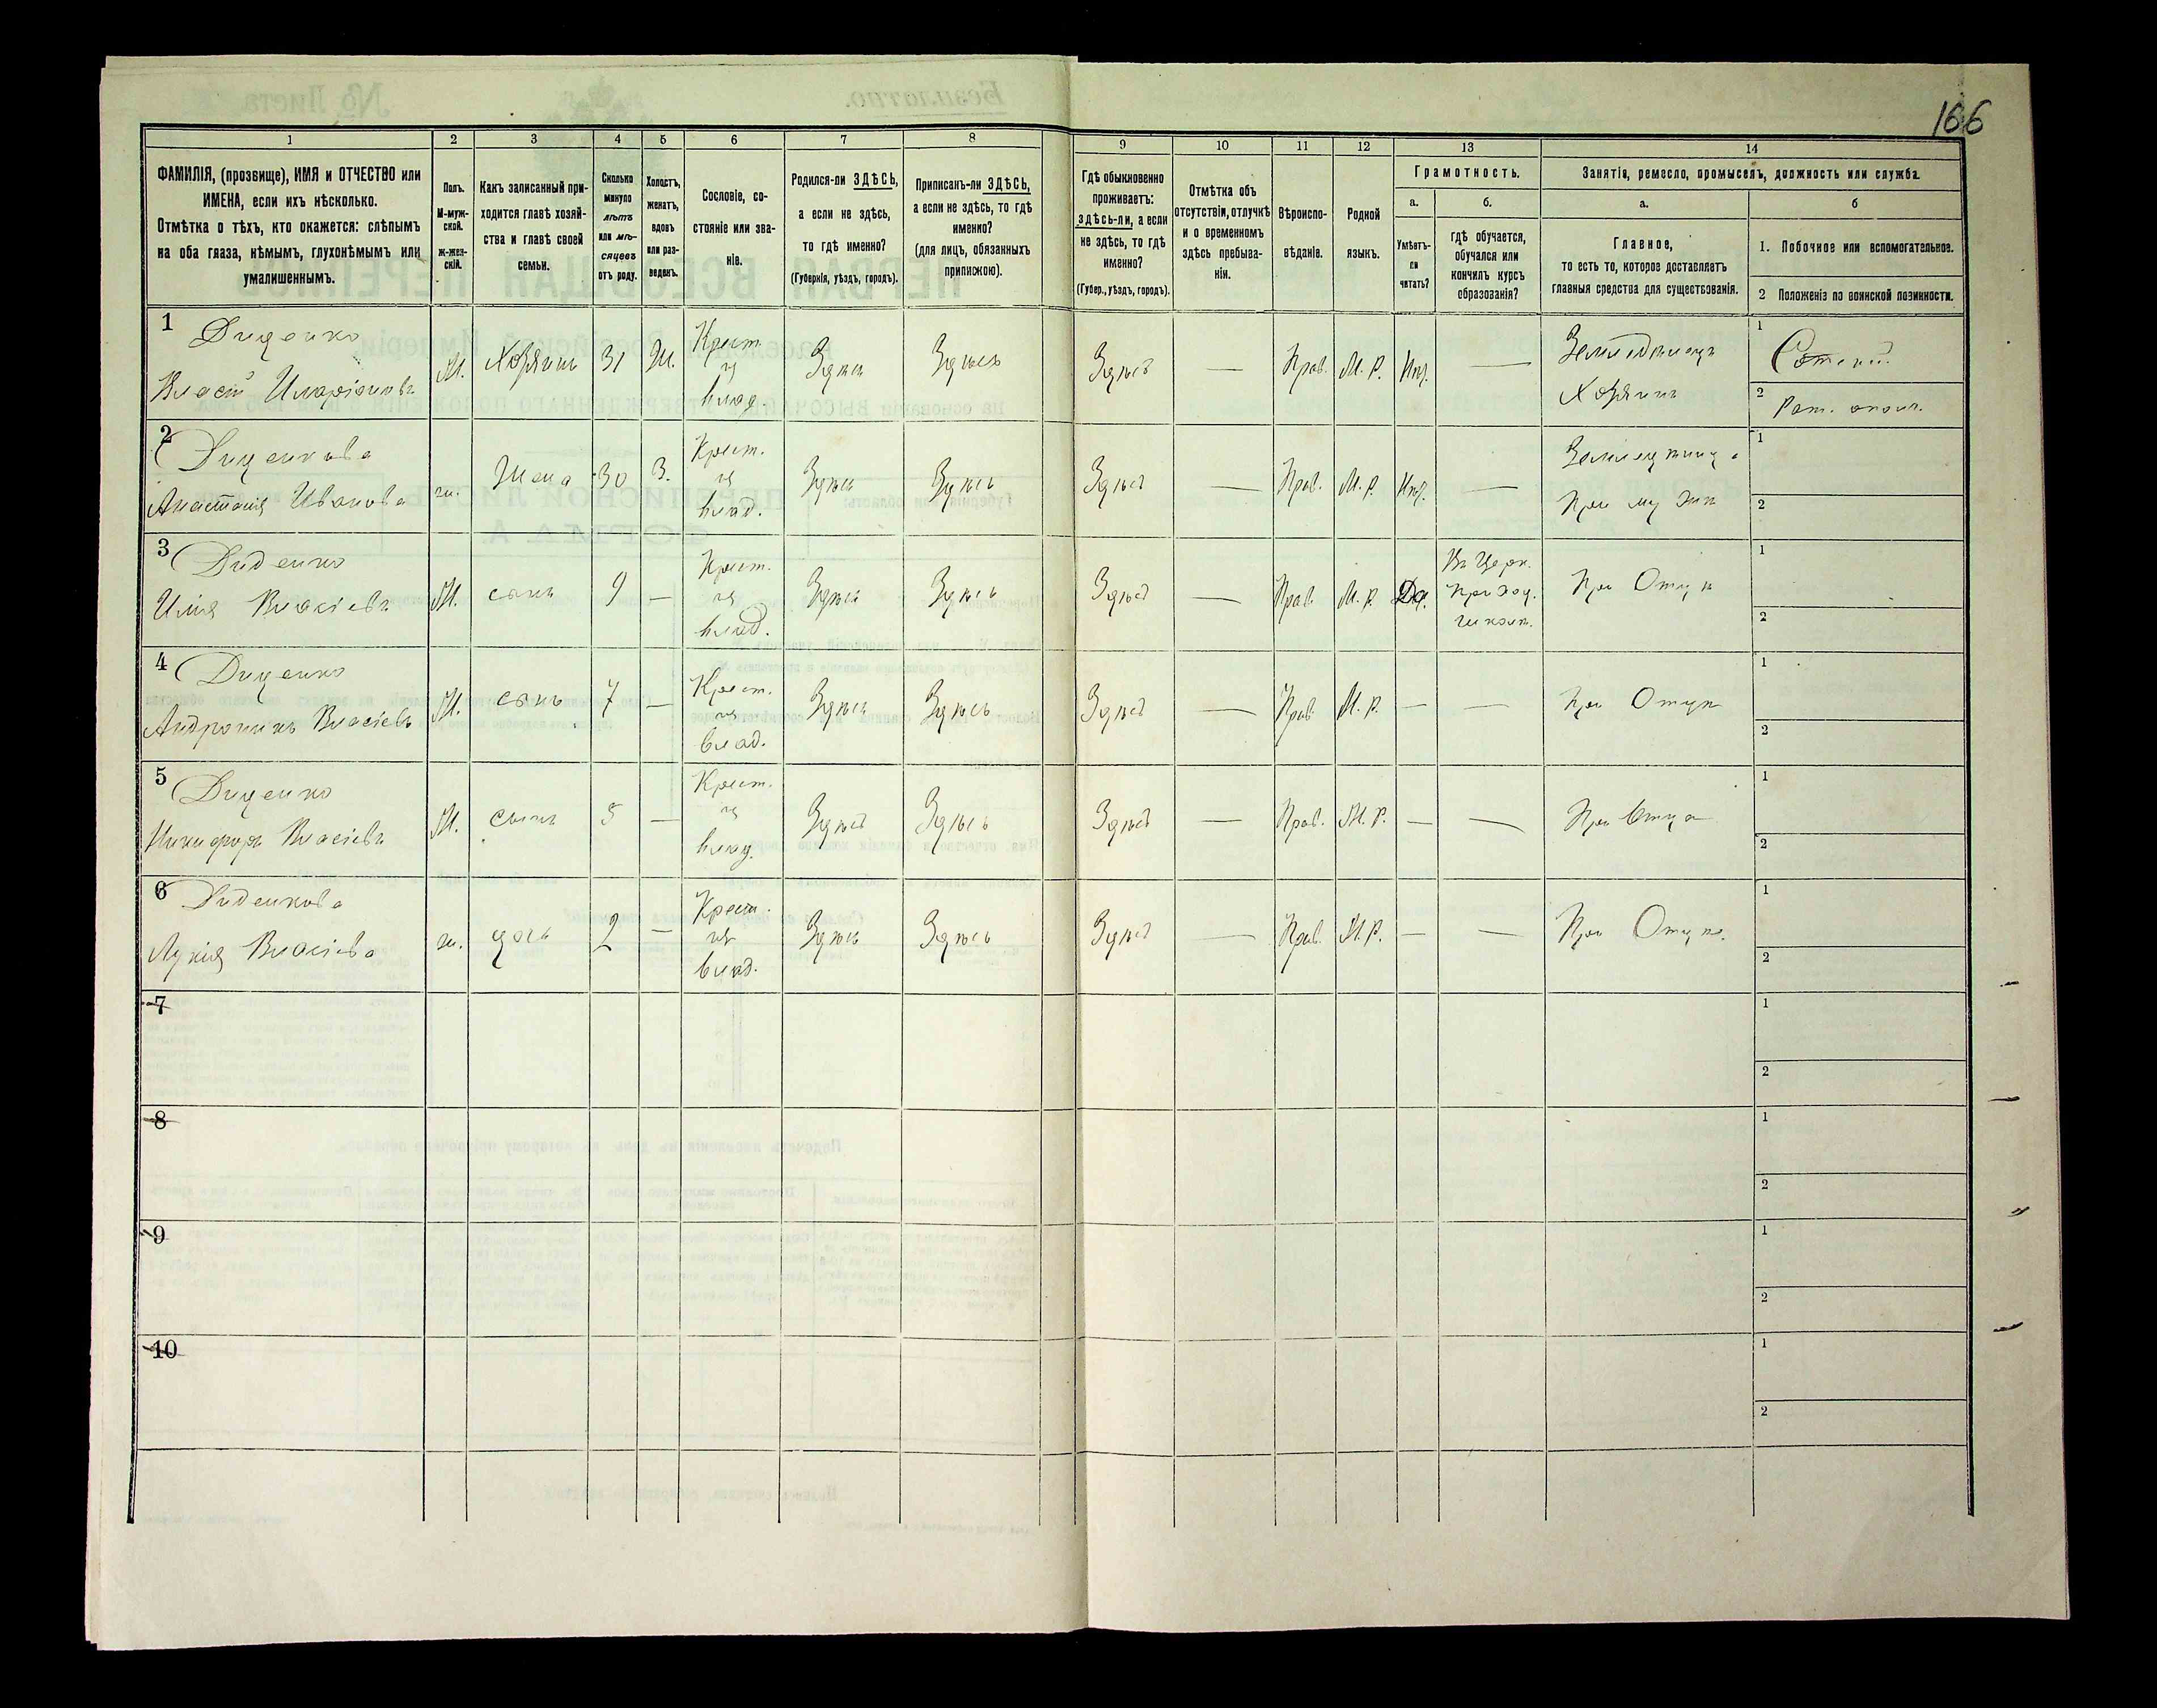 166
1 2 3 4 5 6 7 8 9 10 11 12 13 14
ФАМИЛІЯ, (прозвище), ИМЯ и ОТЧЕСТВО или
ИМЕНА, если ихъ нѣсколько.
Отмѣтка о тѣхъ, кто окажется: слѣпымъ
на оба глаза, нѣмымъ, глухонѣмымъ или
умалишеннымъ.
Полъ.
М-муж-
ской.
ж-жен-
скій.
Какъ записанный при-
ходится главѣ хозяй-
ства и главѣ своей
семьи.
Сколько
минуло
лѣтъ
или мѣ-
сяцевъ
отъ роду.
Холостъ,
женатъ,
вдовъ
или раз-
веденъ.
Сословіе, со-
стояніе или зва-
ніе.
Родился-ли ЗДѢСЬ,
а если не здѣсь,
то гдѣ именно?
(Губернія, уѣздъ, городъ).
Приписанъ-ли ЗДѢСЬ,
а если не здѣсь, то гдѣ
именно?
(для лицъ, обязанныхъ
припискою).
Гдѣ обыкновенно
проживаетъ:
здѣсь-ли, а если
не здѣсь, то гдѣ
именно?
(Губер., уѣздъ, городъ).
Отмѣтка объ
отсутствіи, отлучкѣ
и о временномъ
здѣсь пребыва-
ніи.
Вѣроиспо-
вѣданіе.
Родной
языкъ.
Грамотность.
а.
Умѣетъ-
ли
читать?
б.
гдѣ обучается,
обучался или
кончилъ курсъ
образованія?
Занятія, ремесло, промыселъ, должность или служба.
а.
Главное,
то есть то, которое доставляетъ
главныя средства для существованія.
б
1. Побочное или вспомогательное.
2 Положеніе по воинской повинности.
1 Диденко
Власій Иларіоновъ
М. Хозяинъ 31 Ж.
Крест.
из
влад.
Здѣсь Здѣсь Здѣсь — Прав. М. Р. Нѣт. —
Земледѣлецъ
Хозяинъ
1 Сотскій.
2 Рат. опол.
2 Диденкова
Анастасія Иванова
ж. Жена 30 З.
Крест.
из
влад.
Здѣсь Здѣсь Здѣсь — Прав. М. Р. Нѣт. —
Земледѣлица
При мужѣ
1
2
3 Диденко
Илія Власіевъ
М. сынъ 9 —
Крест.
из
влад.
Здѣсь Здѣсь Здѣсь — Прав. М. Р. Да.
Въ Церк.
приход.
школѣ.
При Отцѣ
1
2
4 Диденко
Андроникъ Власіевъ
М. сынъ 7 —
Крест.
из
влад.
Здѣсь Здѣсь Здѣсь — Прав. М. Р. — —
При Отцѣ
1
2
5 Диденко
Никифоръ Власіевъ
М. сынъ 5 —
Крест.
из
влад.
Здѣсь Здѣсь Здѣсь — Прав. М. Р. — —
При Отцѣ
1
2
6 Диденкова
Лукія Власіева
ж. дочь 2 —
Крест.
из
влад.
Здѣсь Здѣсь Здѣсь — Прав. М. Р. — —
При Отцѣ.
1
2
7
1
2
8
1
2
9
1
2
10
1
2